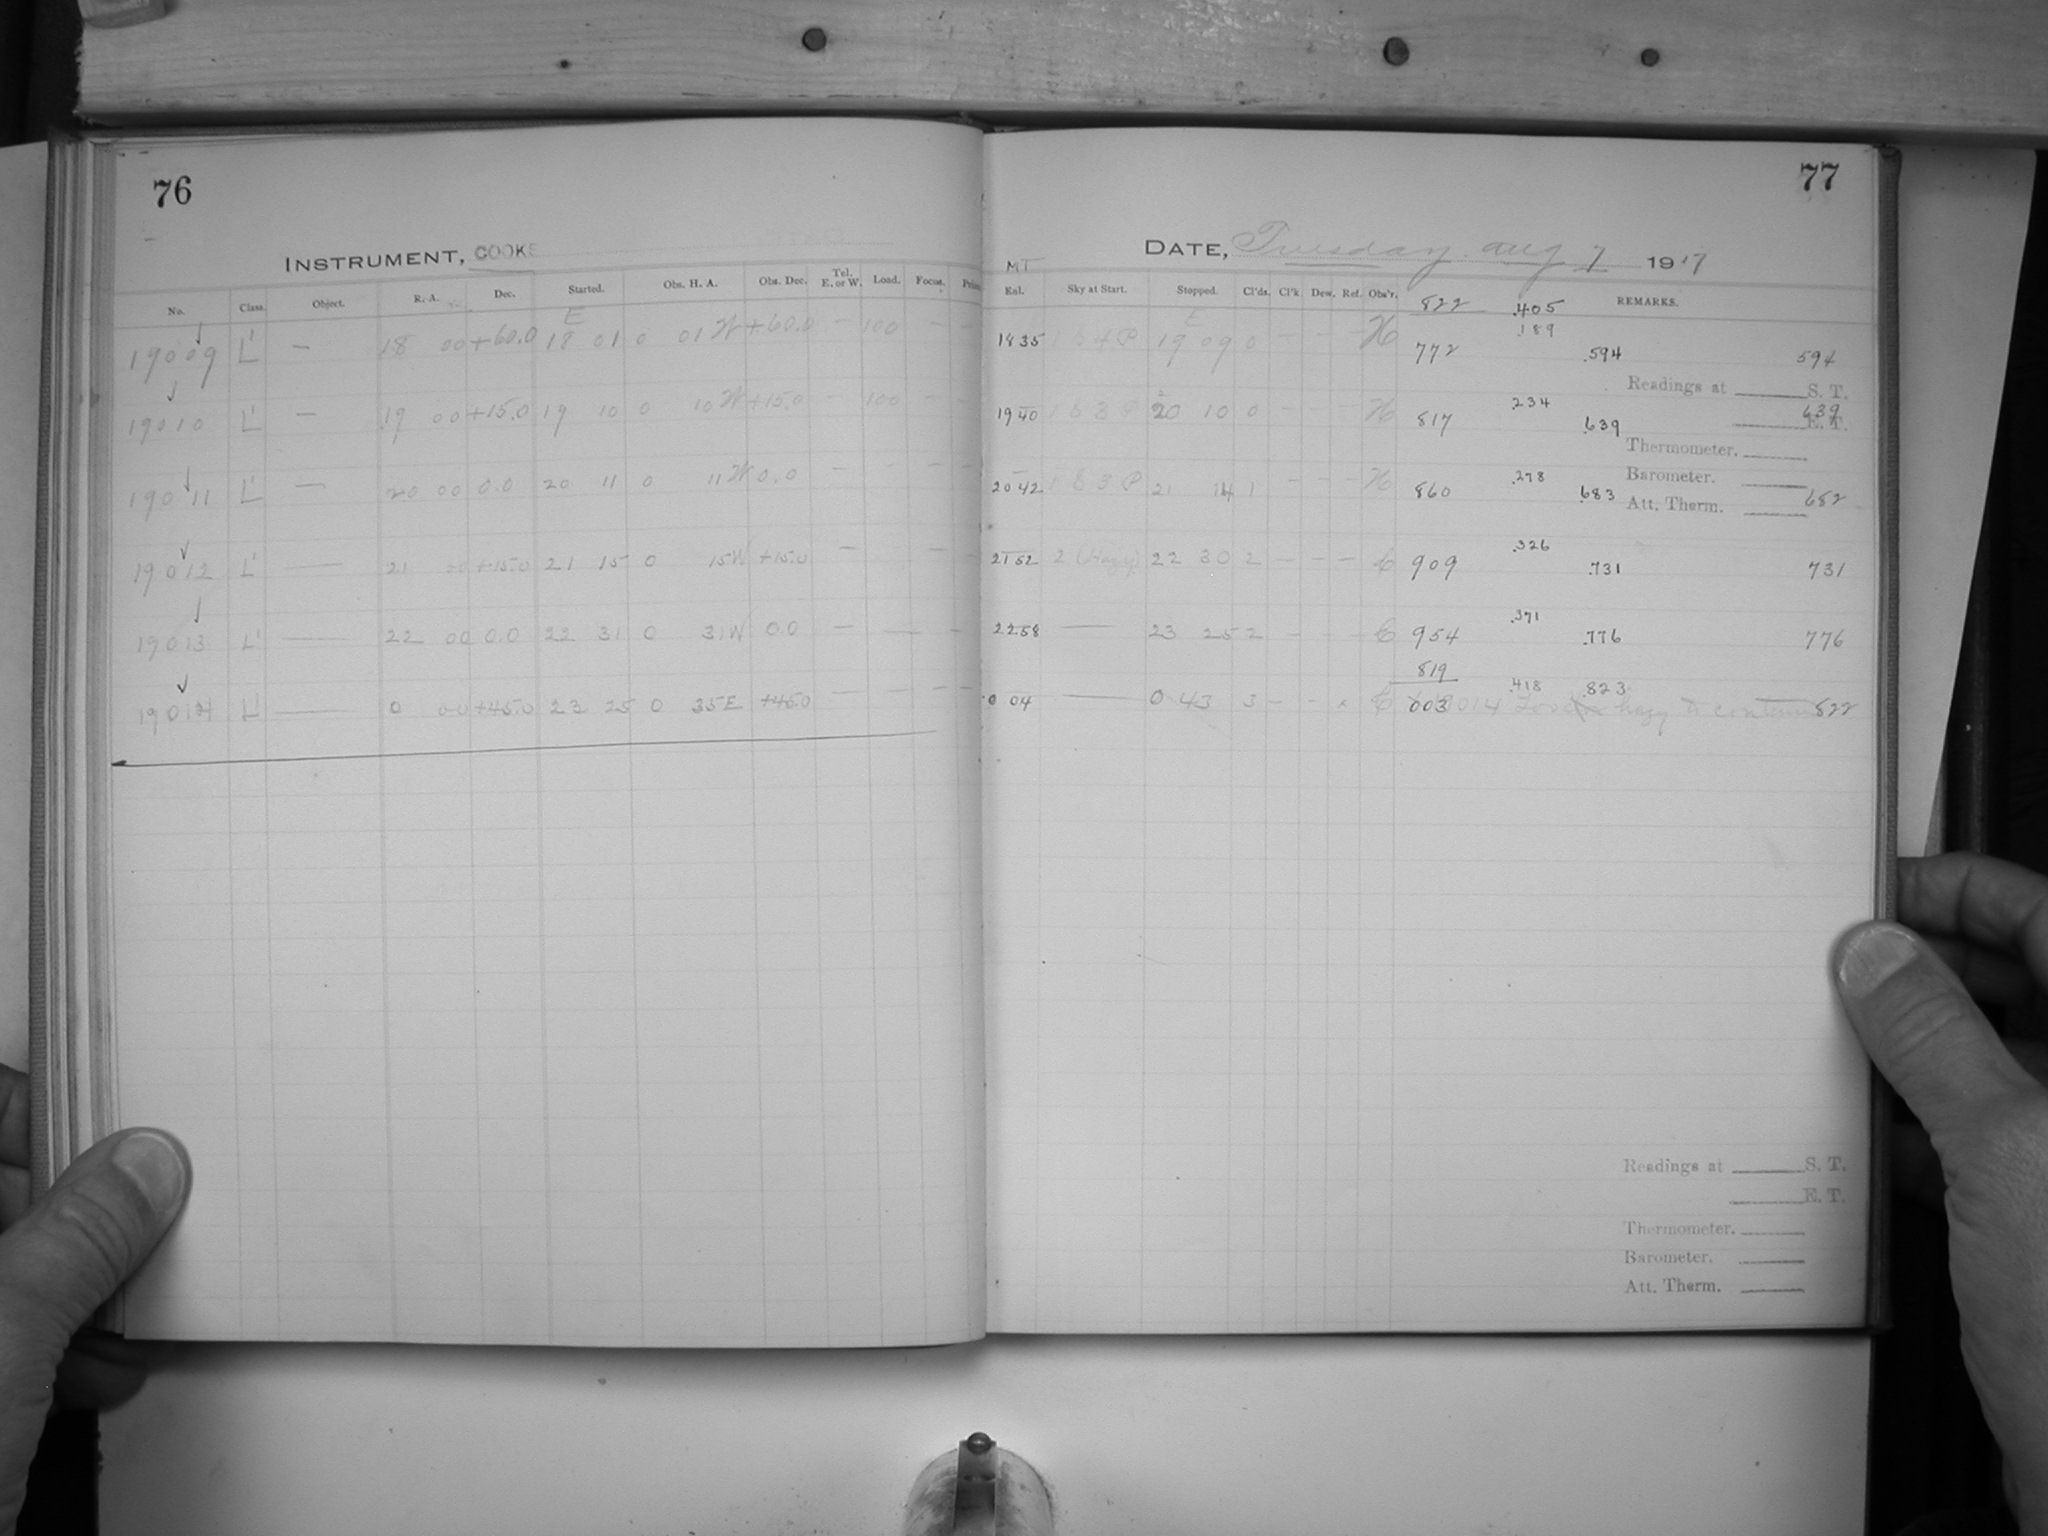 76
INSTRUMENT, COOKE
No. Class. Object. R. A. Dec. Started. Obs. H. A. Obs. Dec. Tel. E. or W. Load. Focus.
E
19009 L' — 18 00 +60.0 18 01 0 01 W +60.0 — 100 — —
19010 L' — 19 00 +15.0 19 10 0 10 W +15.0 — 100 — —
19011 L' — 20 00 0.0 20 11 0 11 W 0.0 — - — —
19012 L' — 21 00 +15.0 21 15 0 15 W +15.0 — — —
19013 L' — 22 00 0.0 22 31 0 31 W 0.0 — — —
19014 L' — 0 00 +45.0 23 25 0 35 E +45.0 — — — —
77
DATE, Tuesday Aug 7 1917
MT
Enl. Sky at Start. Stopped. Cl'ds. Cl'k. Dew. Ref. Obs'r. REMARKS.
822 .405
E
.189
1835 19 09 0 - - - H 772 .594 594
Readings at S. T.
1940 20 10 0 - - - H 817 .234 .639 639
E. T.
Thermometer.
Barometer.
2042 21 14 1 - - - H 860 .278 .683 682
Att. Therm.
2152 2 (Hazy) 22 30 2 — - — C 909 .326 .731 731
2258 — 23 25 2 - - — C 954 .371 .776 776
819
0 04 — 0 43 3 - - C 003 .418 .823 822
014 hazy to
Readings at S. T.
E. T.
Thermometer.
Barometer.
Att. Therm.